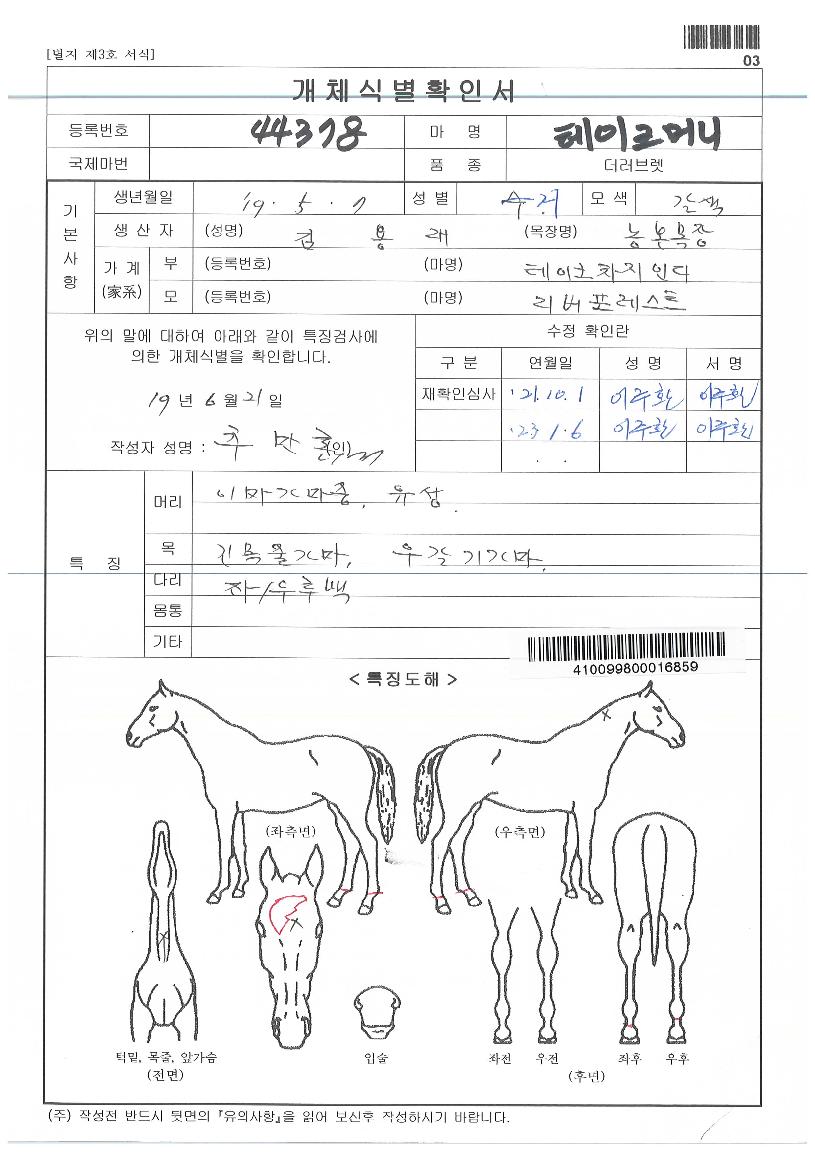 [별지 제3호 서식]
03
개체식별확인서
등록번호 44378 마 명 테이크머니
국제마번 품 종 더러브렛
기본사항
생년월일 '19. 5. 7 성별 수거 모색 갈색
생 산 자 (성명) 김 용 래 (목장명) 농본목장
가 계 (家系) 부 (등록번호) (마명) 테이크차지인디
모 (등록번호) (마명) 리버포레스트
위의 말에 대하여 아래와 같이 특징검사에
의한 개체식별을 확인합니다.
19 년 6 월 21 일
작성자 성명 : 추 만 (인)
수정 확인란
구 분 연월일 성 명 서 명
재확인심사 '21. 10. 1 이주환 이주환
'23 1. 6 이주환 이주환
. .
특 징
머리 이마가마중, 유성.
목 긴목물가마, 우갈기가마.
다리 좌/우후백
몸통
기타
410099800016859
< 특징도해 >
(좌측면) (우측면)
턱밑, 목줄, 앞가슴 입술 좌전 우전 좌후 우후
(전면) (후면)
(주) 작성전 반드시 뒷면의 『유의사항』을 읽어 보신후 작성하시기 바랍니다.